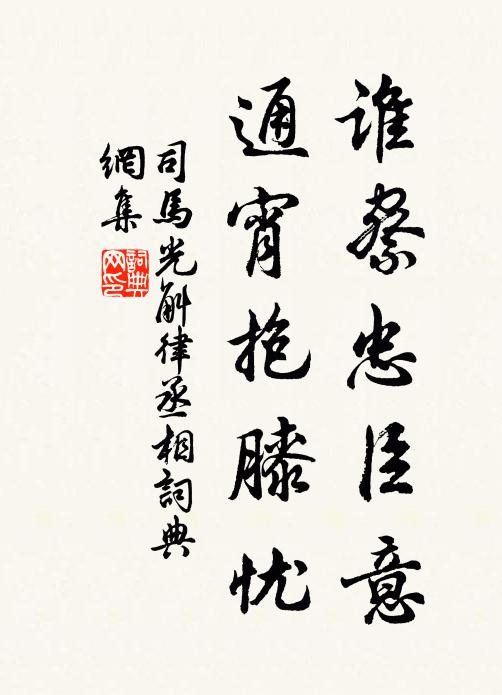 谁察忠臣意
通宵抱膝忧
司馬光斛律丞相詞典
網集
詞典
网印